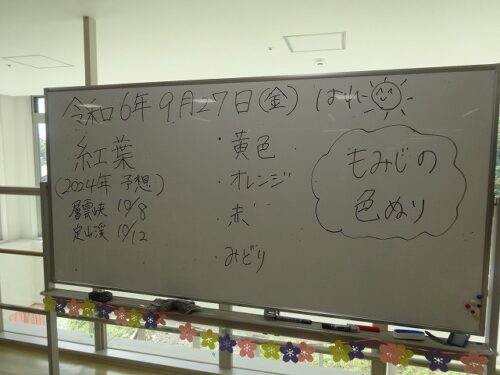 令和6年9月27日(金) はれ
紅葉
(2024年 予想)
層雲峡 10/8
定山渓 10/12
・黄色
・オレンジ
・赤
・みどり
もみじの
色ぬり